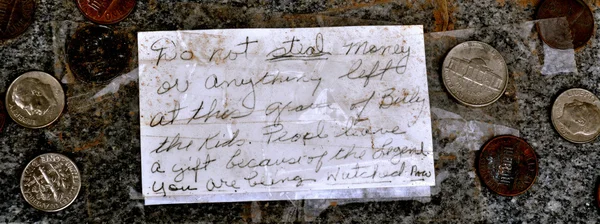 Do not steal Money
or anything left
at this grave of Billy
the Kids. People leave
a gift because of the Legend.
You are being Watched Now